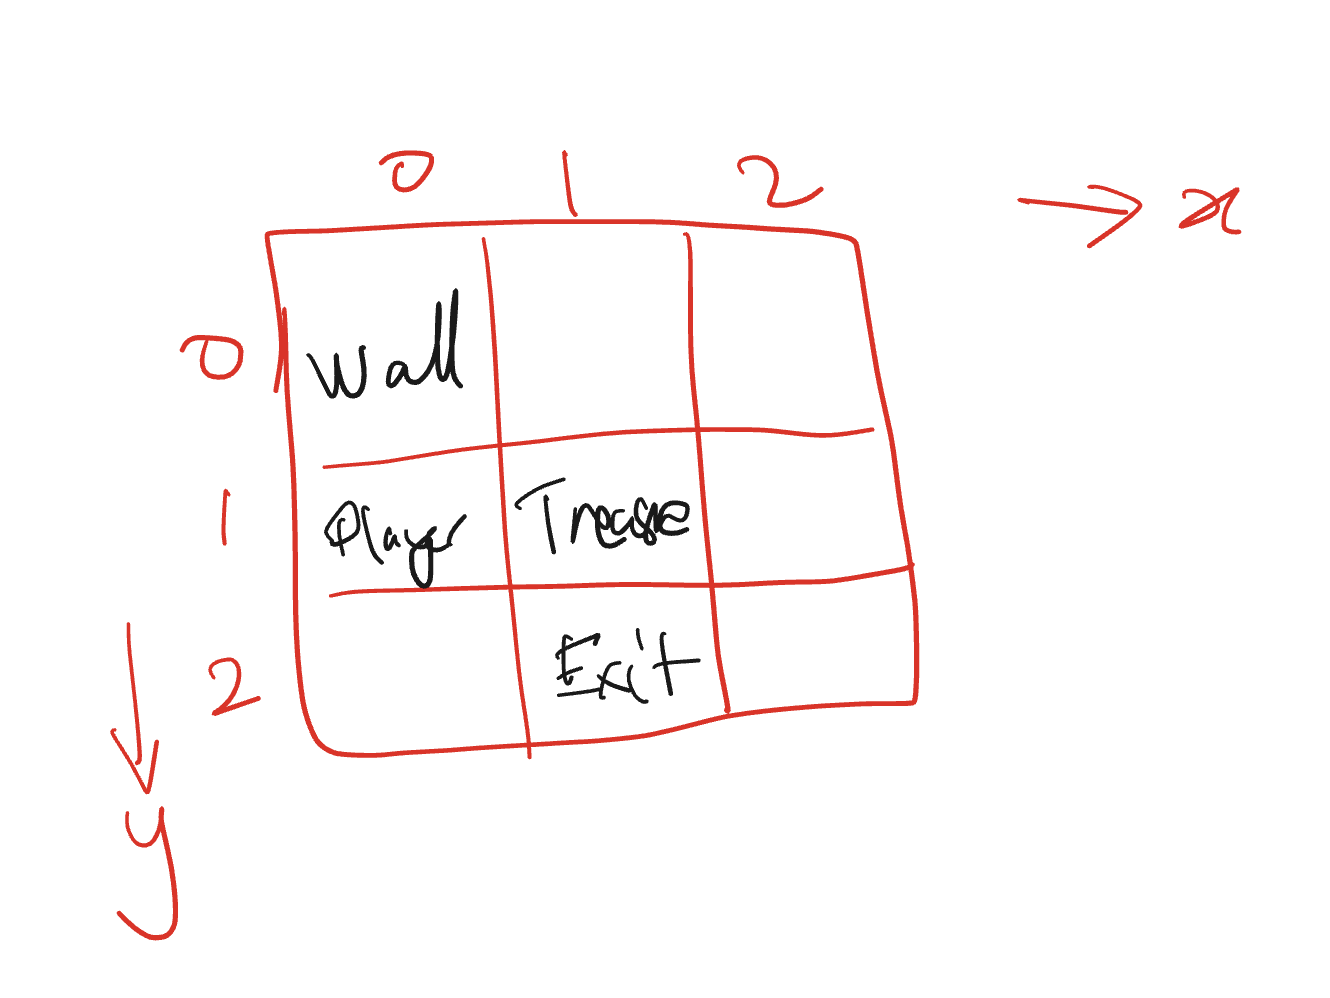 0 1 2 → x
0 Wall
1 Player Treasure
2 Exit
y